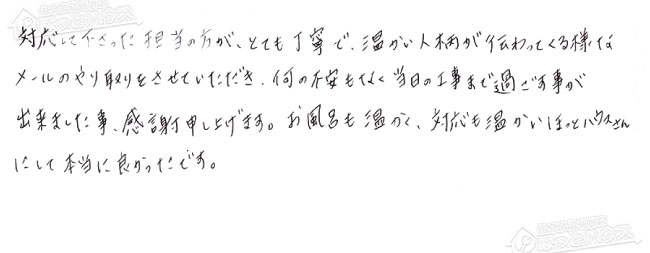 対応して下さった担当の方が、とても丁寧で、温かい人柄が伝わってくる様な
メールのやり取りをさせていただき、何の不安もなく当日の工事まで過ごす事が
出来ました事、感謝申し上げます。お風呂も温かく、対応も温かいほっとハウスさん
にして本当に良かったです。